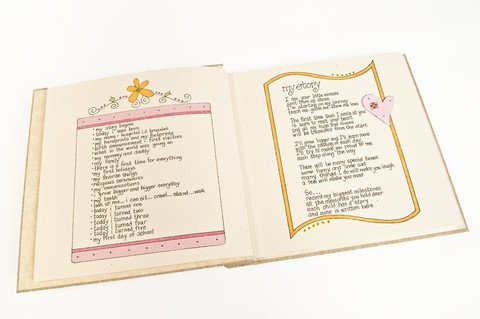 • my story begins
• today I was born
• my name - hospital id bracelet
• my handprints and my footprints
• my announcement - first visitors
• what in the world was going on
• my mommy and daddy
• my family
• there is a first time for everything
• my first holidays
• my favorite things
• religious ceremonies
• my immunizations
• i grow bigger and bigger everyday
• my teeth
• look at me.... i can sit...crawl...stand...walk
• today i turned one
• today i turned two
• today i turned three
• today i turned four
• today i turned five
• my first day of school
my story
I am your little miracle
sent from up above
I'm starting on my journey
teach me guide me show me love
The first time that I smile at you
is sure to melt your heart
and all my hugs and kisses
will be treasured from the start
I'll grow bigger and I'll learn more
with the passing of each day
I'll try to make you proud of me
each step along the way
There will be many special times
some funny and some sad
many things I do will make you laugh
a few will make you mad
So....
record my biggest milestones
all the memories you hold dear
each child has a story
and mine is written here